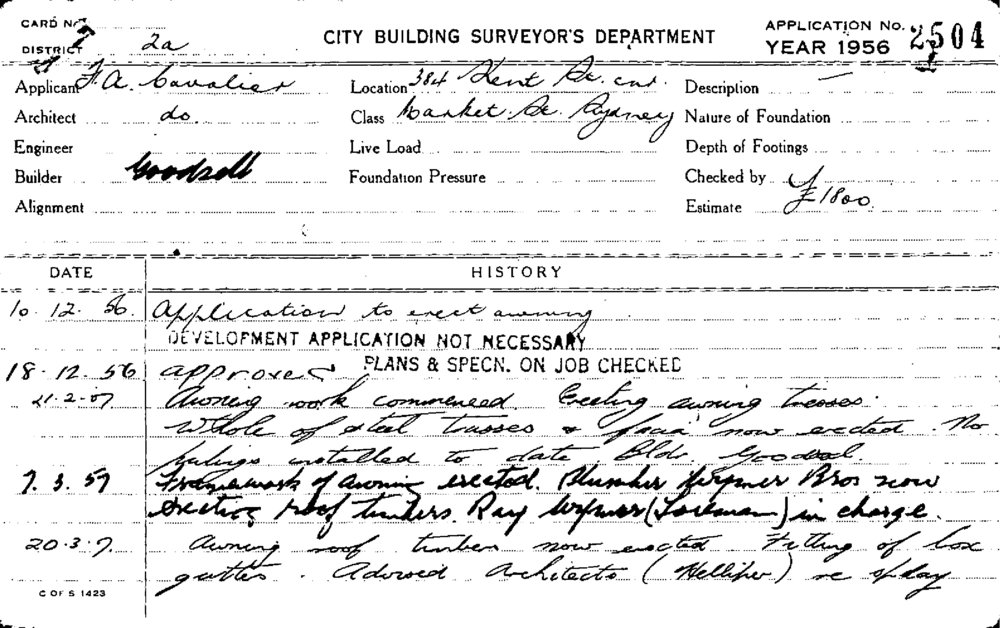 CARD No.
CITY BUILDING SURVEYOR'S DEPARTMENT
APPLICATION No. 2504
YEAR 1956
DISTRICT 2a
Applicant F. A. Cavalier
Location 384 Kent St. cnr.
Description —
Architect do.
Class Market St. Sydney
Nature of Foundation
Engineer
Live Load
Depth of Footings
Builder Goodsell
Foundation Pressure
Checked by
Alignment
Estimate £1800.
DATE HISTORY
10. 12. 56. Application to erect awning
DEVELOPMENT APPLICATION NOT NECESSARY
18. 12. 56 approved PLANS & SPECN. ON JOB CHECKED
21. 2. 57 Awning work commenced Erecting awning trusses.
Whole of steel trusses & now erected. No
installed to date Bldr. Goodsel.
7. 3. 57 Framework of awning erected. Plumber Bros now
erecting roof timbers. Ray (Foreman) in charge.
20. 3. 7. Awning roof timbers now erected Fitting of box
gutter. Advised Architects ( ) re splay
C OF S 1423